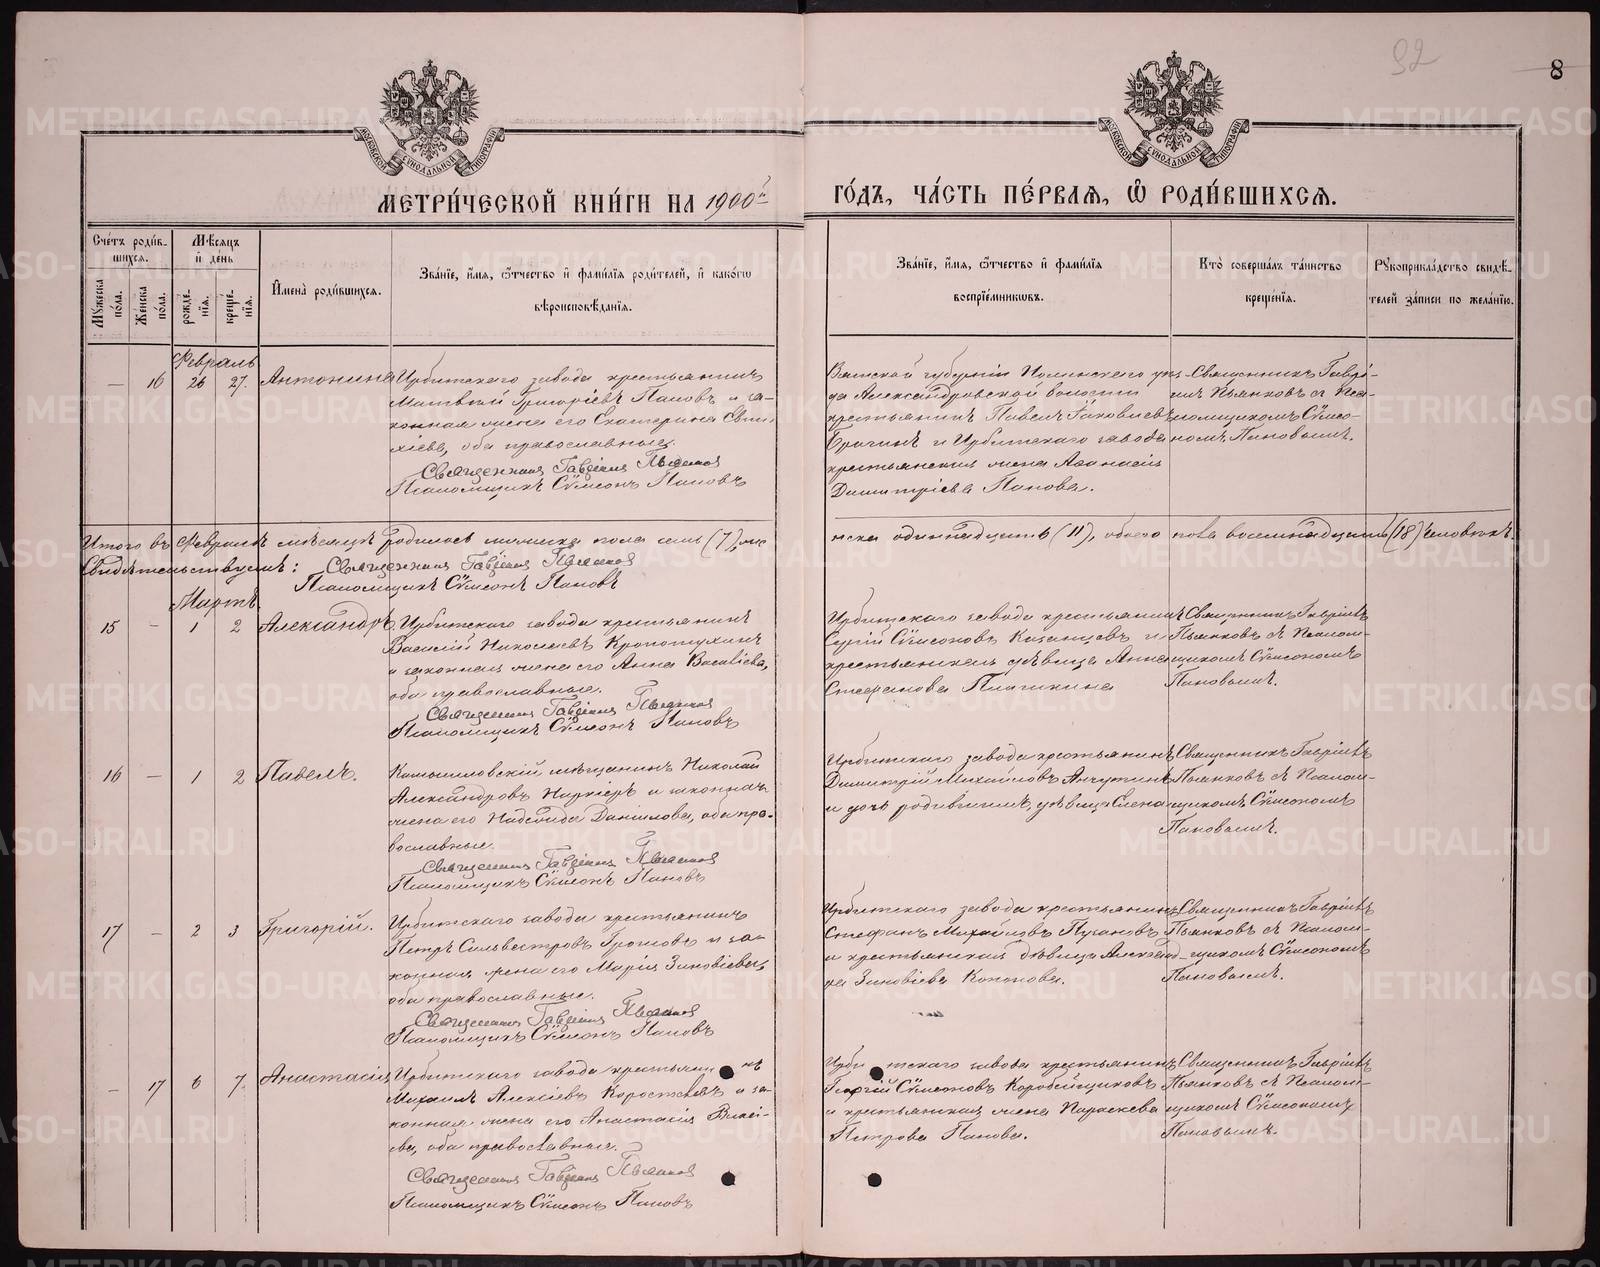 92
8
МОСКОВСКОЙ СѴНОДАЛЬНОЙ ТИПОГРАФІИ
МОСКОВСКОЙ СѴНОДАЛЬНОЙ ТИПОГРАФІИ
МЕТРИ́ЧЕСКОЙ КНИ́ГИ НА 1900й ГО́ДЪ, ЧА́СТЬ ПЕ́РВАЯ, Ѡ҆ РОДИ́ВШИХСЯ.
Сче́тъ роди́в-
шихся.
Мѣ́сяцъ
и҆ де́нь
Му́жеска по́ла.
Же́нска по́ла.
рожде́-нїя.
креще́-нїя.
И҆мена̀ роди́вшихся.
Зва́нїе, и҆́мя, ѻ҆́тчество и҆ фами́лїя роди́телей, и҆ како́гѡ
вѣроисповѣ́данїя.
Зва́нїе, и҆́мя, ѻ҆́тчество и҆ фами́лїя
воспрїе́мниковъ.
Кто̀ соверша́лъ та́инство
креще́нїя.
Рукоприкла́дство свидѣ́-
телей за́писи по жела́нїю.
Февраль
— 16 26 27. Антонина
Ирбитскаго завода крестьянинъ
Матвѣй Григоріевъ Пановъ и за-
конная жена его Екатерина
оба православные.
Священникъ Гавріилъ Пьянковъ
Псаломщикъ Сѵмеонъ Пановъ
Вятской губерніи уѣз-
да Александровской волости
крестьянинъ Павелъ Іаковлевъ
Брагинъ и Ирбитскаго завода
крестьянская жена Аѳанасія
Димитріева Панова.
Священникъ Гаврі-
илъ Пьянковъ съ Пса-
ломщикомъ Сѵмео-
номъ Пановымъ.
Итого въ Февралѣ мѣсяцѣ родилось мужеска пола семь (7), же-
нска одиннадцать (11), обоего пола восемнадцать (18) человѣкъ.
Свидѣтельствуемъ: Священникъ Гавріилъ Пьянковъ
Псаломщикъ Сѵмеонъ Пановъ
Мартъ.
15 — 1 2 Александръ
Ирбитскаго завода крестьянинъ
Василій Николаевъ Кропотухинъ
и законная жена его Анна Васильева,
оба православные.
Священникъ Гавріилъ Пьянковъ
Псаломщикъ Сѵмеонъ Пановъ
Ирбитскаго завода крестьянинъ
Сергій Сѵмеоновъ Казанцевъ и
крестьянская дѣвица Анна
Стефанова
Священникъ Гавріилъ
Пьянковъ съ Псалом-
щикомъ Сѵмеономъ
Пановымъ.
16 — 1 2 Павелъ.
Камышловскій мѣщанинъ Николай
Александровъ и законная
жена его Надежда Данилова, оба пра-
вославные.
Священникъ Гавріилъ Пьянковъ
Псаломщикъ Сѵмеонъ Пановъ
Ирбитскаго завода крестьянинъ
Димитрій Михайловъ
и дочь родившихъ, дѣвица Елена
Священникъ Гавріилъ
Пьянковъ съ Псалом-
щикомъ Сѵмеономъ
Пановымъ.
17 — 2 3 Григорій.
Ирбитскаго завода крестьянинъ
Петръ Сильвестровъ Громовъ и за-
конная жена его Марія Зиновіева,
оба православные.
Священникъ Гавріилъ Пьянковъ
Псаломщикъ Сѵмеонъ Пановъ
Ирбитскаго завода крестьянинъ
Стефанъ Михайловъ Пузановъ
и крестьянская дѣвица Александ-
ра Зиновіева Кононова.
Священникъ Гавріилъ
Пьянковъ съ Псалом-
щикомъ Сѵмеономъ
Пановымъ.
— 17 6 7. Анастасія
Ирбитскаго завода крестьянинъ
Михаилъ Алексіевъ Коростелевъ и за-
конная жена его Анастасія
оба православные.
Священникъ Гавріилъ Пьянковъ
Псаломщикъ Сѵмеонъ Пановъ
Ирбитскаго завода крестьянинъ
Георгій Сѵмеоновъ Коробейщиковъ
и крестьянская жена Параскева
Петрова Панова.
Священникъ Гавріилъ
Пьянковъ съ Псалом-
щикомъ Сѵмеономъ
Пановымъ.
METRIKI.GASO-URAL.RU